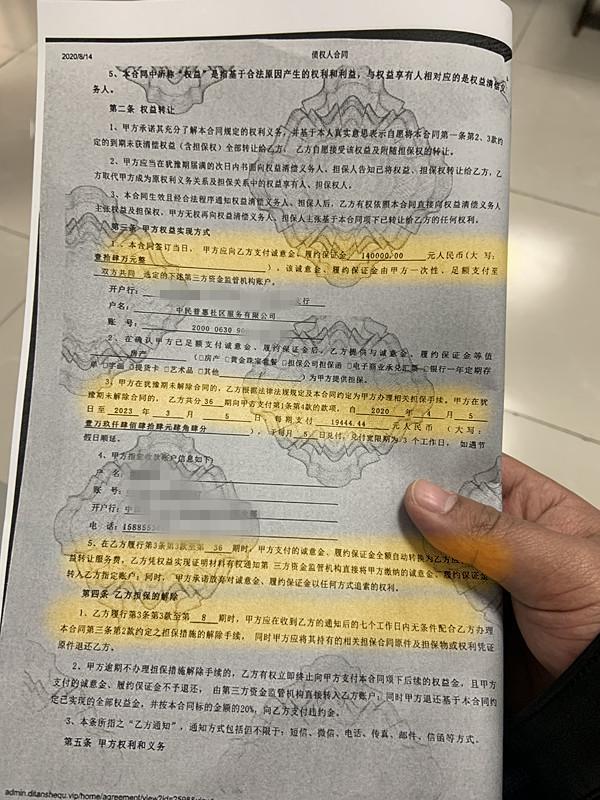 2020/8/14
债权人合同
5、本合同中所称“权益”是指基于合法原因产生的权利和利益，与权益享有人相对应的是权益清偿义
务人。
第二条 权益转让
1、甲方承诺其充分了解本合同规定的权利义务，并基于本人真实意思表示自愿将本合同第一条第2、3款约
定的到期未获清偿权益（含担保权）全部转让给乙方，乙方自愿接受该权益及附随担保权的转让。
2、甲方应当在犹豫期届满的次日内书面向权益清偿义务人、担保人告知已将权益、担保权转让给乙方，乙
方取代甲方成为原权利义务关系及担保关系中的权益享有人、担保权人。
3、本合同生效且经合法程序通知权益清偿义务人、担保人后，乙方有权依照本合同直接向权益清偿义务人
主张权益及担保权，甲方无权再向权益清偿义务人、担保人主张基于本合同项下已转让给乙方的任何权利。
第三条 甲方权益实现方式
1、本合同签订当日，甲方应向乙方支付诚意金、履约保证金 140000.00 元人民币（大 写：
壹拾肆万元整 ），该诚意金、履约保证金由甲方一次性、足额支付至
双方共同 选定的下述第三方资金监管机构账户。
开户行： 行
户名： 中民普惠社区服务有限公司
账 号： 2000 0630 90
2、在确认甲方已足额支付诚意金、履约保证金后，乙方提供与诚意金、履约保证金等值
房产 （□房产 □黄金珠宝套餐 □担保公司担保函 □电子商业承兑汇票 □银行一年定期存
单 □字画 □提货卡 □艺术品 □其他 ）为甲方提供担保。
3、甲方在犹豫期未解除合同的，乙方根据法律法规规定及本合同约定为甲方办理相关担保手续。甲方在犹
豫期未解除合同的，乙方共分 36 期向甲方支付第1条第4款的款项，自 2020 年 4 月 5
日至 2023 年 3 月 5 日，每期支付 19444.44 元人民币 （大写：
壹万玖仟肆佰肆拾肆元肆角肆分 ），于每月 5 日兑付，兑付宽限期为 3 个工作日，如遇节
假日顺延。
4、甲方指定收款账户信息如下：
户 名：
账 号：
开户行：中
电 话：1588553
5、在乙方履行第3条第3款至第 36 期时，甲方支付的诚意金、履约保证金全额自动转换为乙方应
益转让服务费，乙方凭权益实现证明材料有权通知第三方资金监管机构直接将甲方缴纳的诚意金、履约保证金
转入乙方指定账户；同时，甲方承诺放弃对诚意金、履约保证金以任何方式追索的权利。
第四条 乙方担保的解除
1、乙方履行第3条第3款至第 8 期时，甲方应在收到乙方的通知后的七个工作日内无条件配合乙方办理
本合同第三条第2款约定之担保措施的解除手续，同时甲方应将其持有的相关担保合同原件及担保物或权利凭证
原件退还乙方。
2、甲方逾期不办理担保措施解除手续的，乙方有权立即终止向甲方支付本合同项下后续的权益金，且甲方
支付的诚意金、履约保证金不予退还，由第三方资金监管机构直接转入乙方账户；同时甲方退还基于本合同约
定已实现的全部权益金，并按本合同标的金额的20%，向乙方支付违约金。
3、本条所指之“乙方通知”，通知方式包括但不限于：短信、微信、电话、传真、邮件、信函等方式。
第五条 甲方权利和义务
admin.ditanshequ.vip/home/agreement/view?id=2598